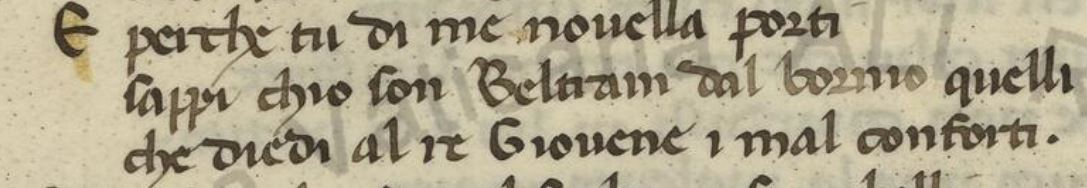 E perche tu di me nouella porti
sappi chio son Beltram dal bornio quelli
che diedi al re Giouene i mal conforti.